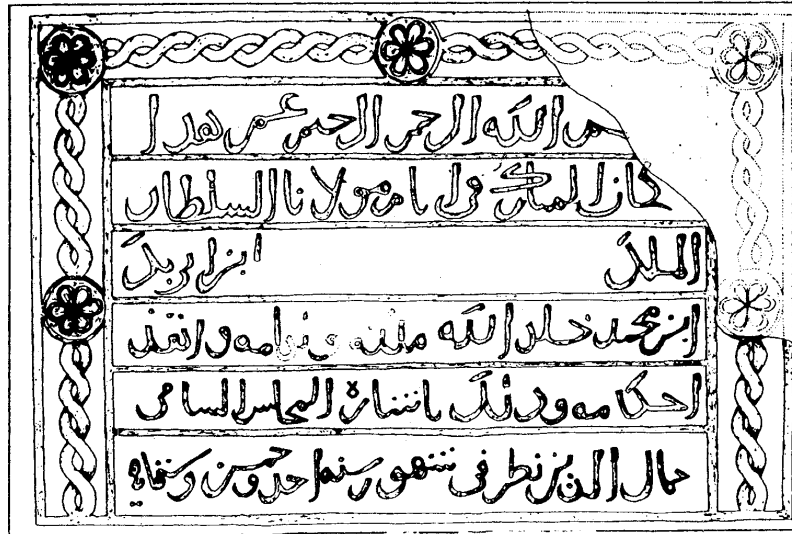 الله الرحمن الرحيم عمر هذا ا
المبارك في ايام مولانا السلطان
الملك ابن
ابن محمد خلد الله وانفذ
احكامه وذلك باشارة المجلس السامي
جمال الدين بن في شهور سنة احد وخمسين وستماية